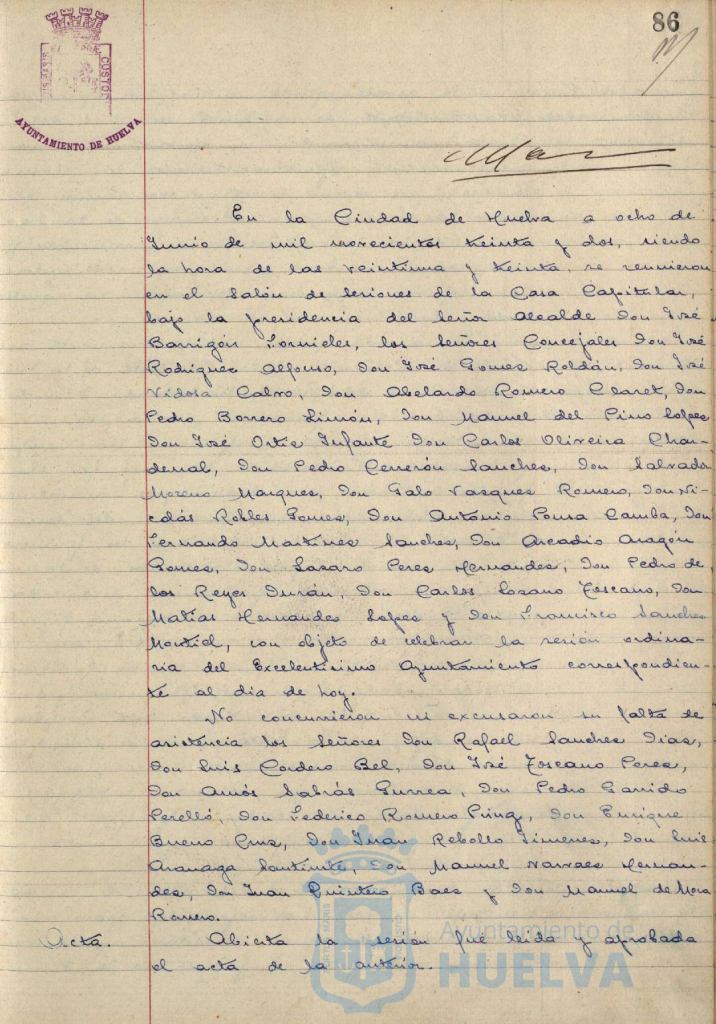 86
CUSTOD
AYUNTAMIENTO DE HUELVA
En la Ciudad de Huelva a ocho de
Junio de mil novecientos treinta y dos, siendo
la hora de las veintiuna y treinta, se reunieron
en el Salón de Sesiones de la Casa Capitular,
bajo la presidencia del Señor Alcalde Don José
Barrigón Fornieles, los Señores Concejales Don José
Rodriguez Alfonso, Don José Gomez Roldán, Don José
Vidosa Calvo, Don Abelardo Romero Claret, Don
Pedro Borrero Limón, Don Manuel del Pino Lopez
Don José Ortiz Infante Don Carlos Oliveira Char-
denal, Don Pedro Cerrejón Sanchez, Don Salvador
Moreno Marquez, Don Galo Vazquez Romero, Don Ni-
colás Robles Gomez, Don Antonio Pousa Camba, Don
Fernando Martinez Sanchez, Don Arcadio Aragón
Gomez, Don Lazaro Perez Hernandez, Don Pedro de
los Reyes Durán, Don Carlos Lozano Toscano, Don
Matías Hernandez Lopez y Don Francisco Sanchez
Montiel, con objeto de celebrar la sesión ordina-
ria del Excelentisimo Ayuntamiento correspondien-
te al dia de hoy.
No concurrieron ni excusaron su falta de
asistencia los Señores Don Rafael Sanchez Diaz,
Don Luis Cordero Bel, Don José Toscano Perez,
Don Amós Sabrás Gurrea, Don Pedro Garrido
Perelló, Don Federico Romero Don Enrique
Bueno Cruz, Don Juan Rebollo Jimenez, Don Luis
Don Manuel Narvaez Hernan-
dez, Don Juan Quintero Baez y Don Manuel de Mora
Romero.
Acta. Abierta la sesión fué leida y aprobada
el acta de la anterior.
Ayuntamiento de
HUELVA